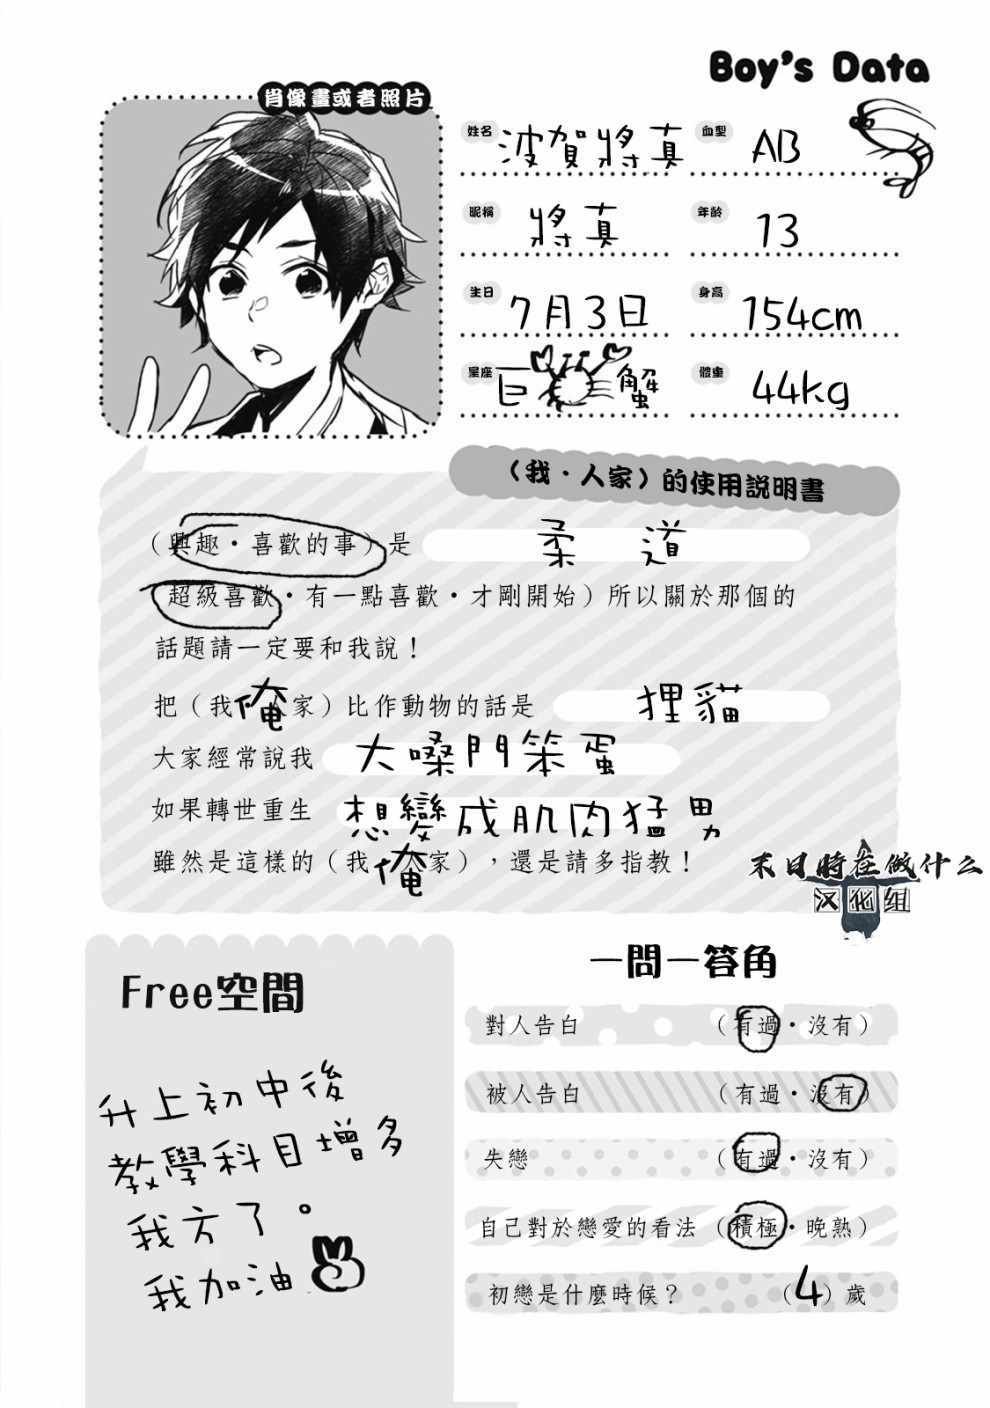 Boy's Data
肖像畫或者照片
姓名 波賀將真
血型 AB
昵稱 將真
年齡 13
生日 7月3日
身高 154cm
星座 巨蟹
體重 44kg
（我・人家）的使用説明書
（興趣・喜歡的事）是 柔道
（超級喜歡・有一點喜歡・才剛開始）所以關於那個的
話題請一定要和我說！
把（我俺人家）比作動物的話是 狸貓
大家經常說我 大嗓門笨蛋
如果轉世重生 想變成肌肉猛男
雖然是這樣的（我俺家），還是請多指教！
末日時在做什么
汉化组
Free空間
升上初中後
教學科目增多
我方了。
我加油
一問一答角
對人告白 （有過・沒有）
被人告白 （有過・沒有）
失戀 （有過・沒有）
自己對於戀愛的看法 （積極・晚熟）
初戀是什麼時候？ （4）歲